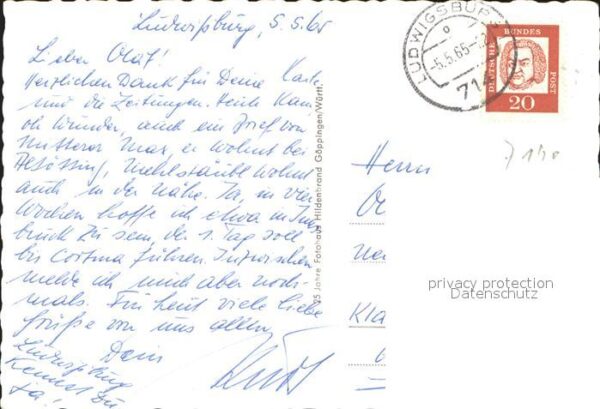 Ludwigsburg, 5.5.65
Lieber Olaf!
Herzlichen Dank für Deine Karte
und die Zeitungen. Heute kam
oh Wunder, auch ein Brief von
Max, er wohnt bei
wohnt
auch in der Nähe. Ja, in vier
Wochen hoffe ich etwa in Inns
bruck zu sein, der 1. Tag soll
bis Cortina führen. Inzwischen
melde ich mich aber noch-
mals. Für heut viele liebe
Grüße von uns allen
Dein
Kurt
Ludwigsburg
Kennst Du
ja!
25 Jahre Fotohaus Hildenbrand Göppingen/Württ.
LUDWIGSBURG
-5.5.65-
714
DEUTSCHE BUNDES POST
20
7140
Herrn
Ol
Kla
privacy protection
Datenschutz